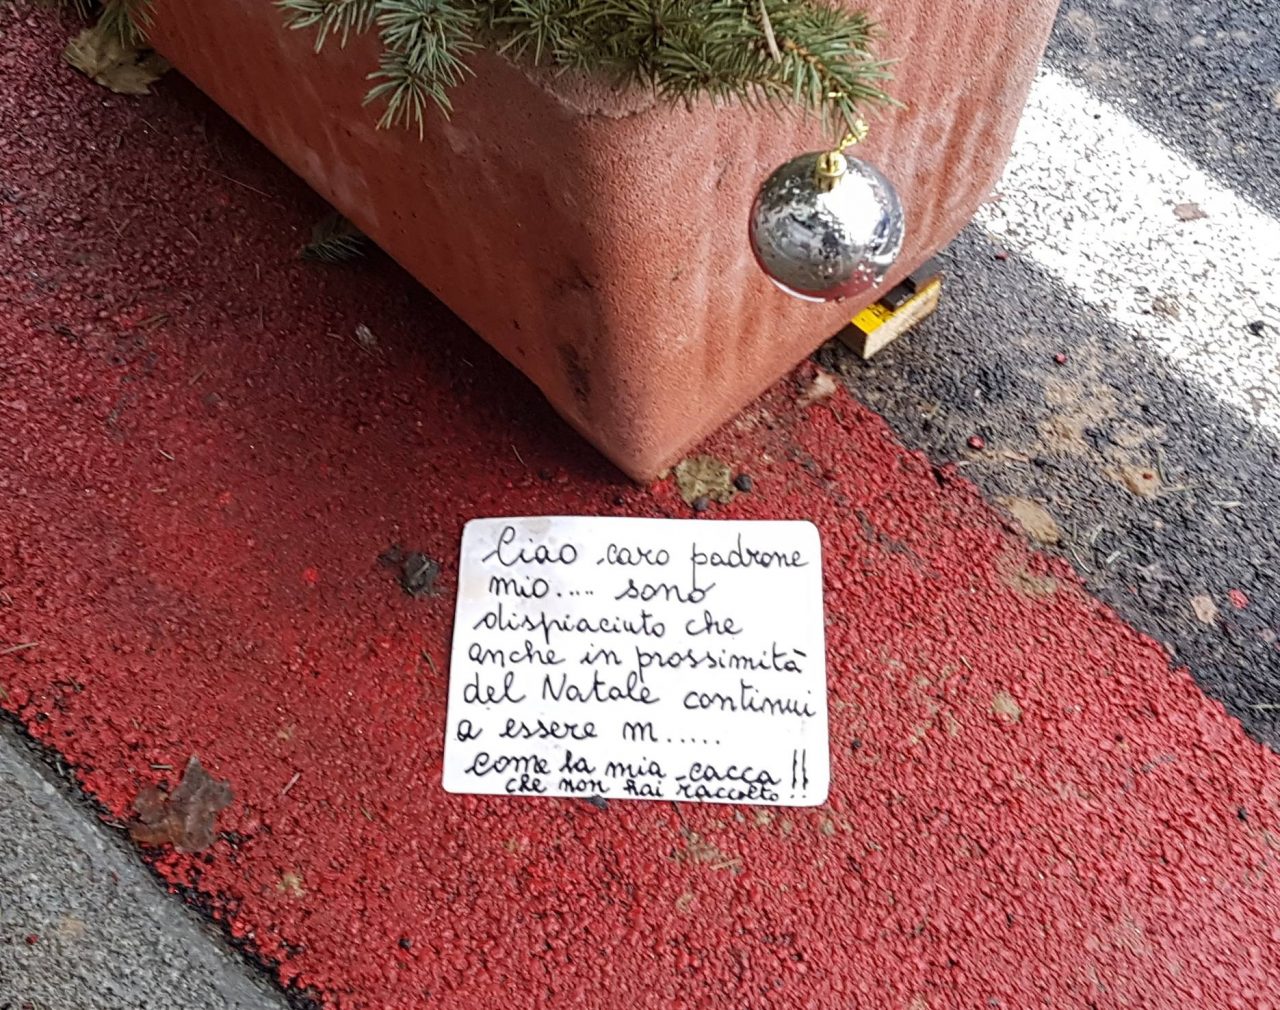 Ciao caro padrone
mio..... sono
dispiaciuto che
anche in prossimità
del Natale continui
a essere m.....
come la mia cacca !!
che non hai raccolto